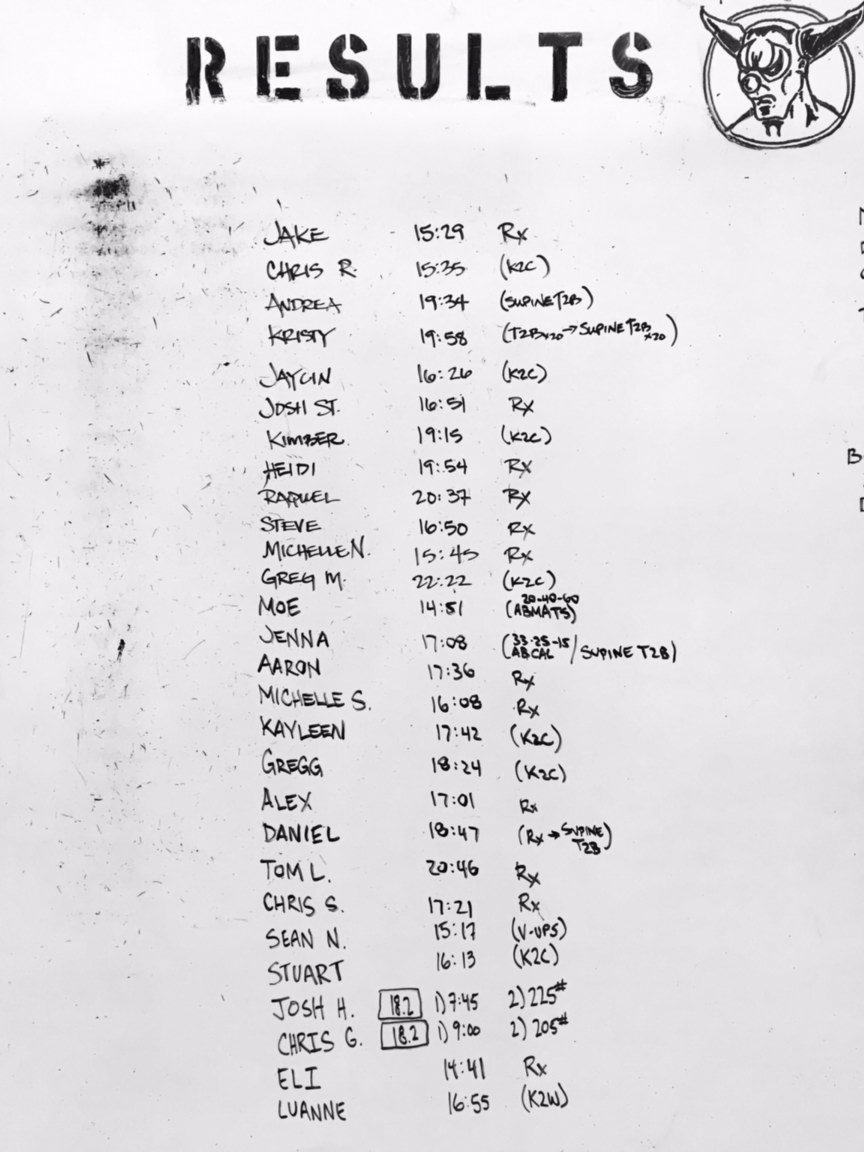 RESULTS
JAKE 15:29 Rx
CHRIS R. 15:35 (K2C)
ANDREA 19:34 (SUPINE T2B)
KRISTY 19:58 (T2Bx20 → SUPINE T2B x20)
JAYLIN 16:26 (K2C)
JOSH ST. 16:51 Rx
KIMBER 19:15 (K2C)
HEIDI 19:54 Rx
RAQUEL 20:37 Rx
STEVE 16:50 Rx
MICHELLE N. 15:45 Rx
GREG M. 22:22 (K2C)
MOE 14:51 (20-40-60 ABMATS)
JENNA 17:08 (33-25-15 AB CAL / SUPINE T2B)
AARON 17:36 Rx
MICHELLE S. 16:08 Rx
KAYLEEN 17:42 (K2C)
GREGG 18:24 (K2C)
ALEX 17:01 Rx
DANIEL 18:47 (Rx → SUPINE T2B)
TOM L. 20:46 Rx
CHRIS S. 17:21 Rx
SEAN N. 15:17 (V-UPS)
STUART 16:13 (K2C)
JOSH H. 18.2 1) 7:45 2) 225#
CHRIS G. 18.2 1) 9:00 2) 205#
ELI 14:41 Rx
LUANNE 16:55 (K2W)